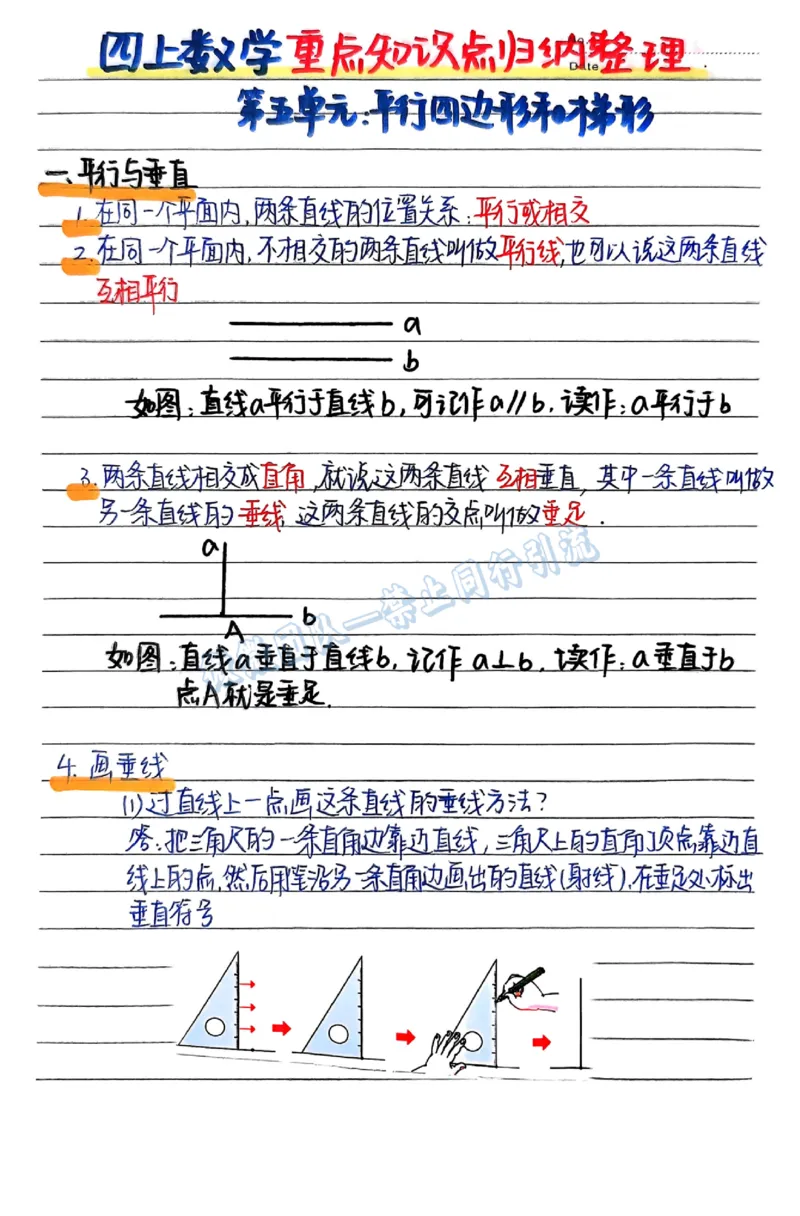 四上数学重点知识点归纳整理
Date
第五单元:平行四边形和梯形
一、平行与垂直
1.在同一个平面内,两条直线的位置关系:平行或相交
2.在同一个平面内,不相交的两条直线叫做平行线,也可以说这两条直线
互相平行
a
b
如图:直线a平行于直线b,可记作a∥b.读作:a平行于b
3.两条直线相交成直角,就说这两条直线互相垂直,其中一条直线叫做
另一条直线的垂线,这两条直线的交点叫做垂足.
a
b
A
团队一禁止同行引流
如图:直线a垂直于直线b,记作a⊥b.读作:a垂直于b
点A就是垂足.
4.画垂线
(1)过直线上一点画这条直线的垂线方法?
答:把三角尺的一条直角边靠近直线,三角尺上的直角顶点靠近直
线上的点,然后用笔沿另一条直角边画出的直线(射线),在垂足处标出
垂直符号